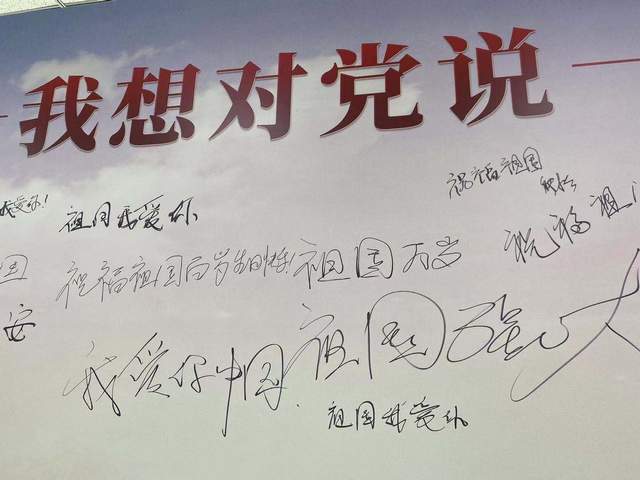 我想对党说
我爱你!
祖国我爱你
祝福祖国
祝福祖
国
祝福祖国百岁生日快乐!
祖国万岁
安
我爱你中国
祖国强大
祖国我爱你